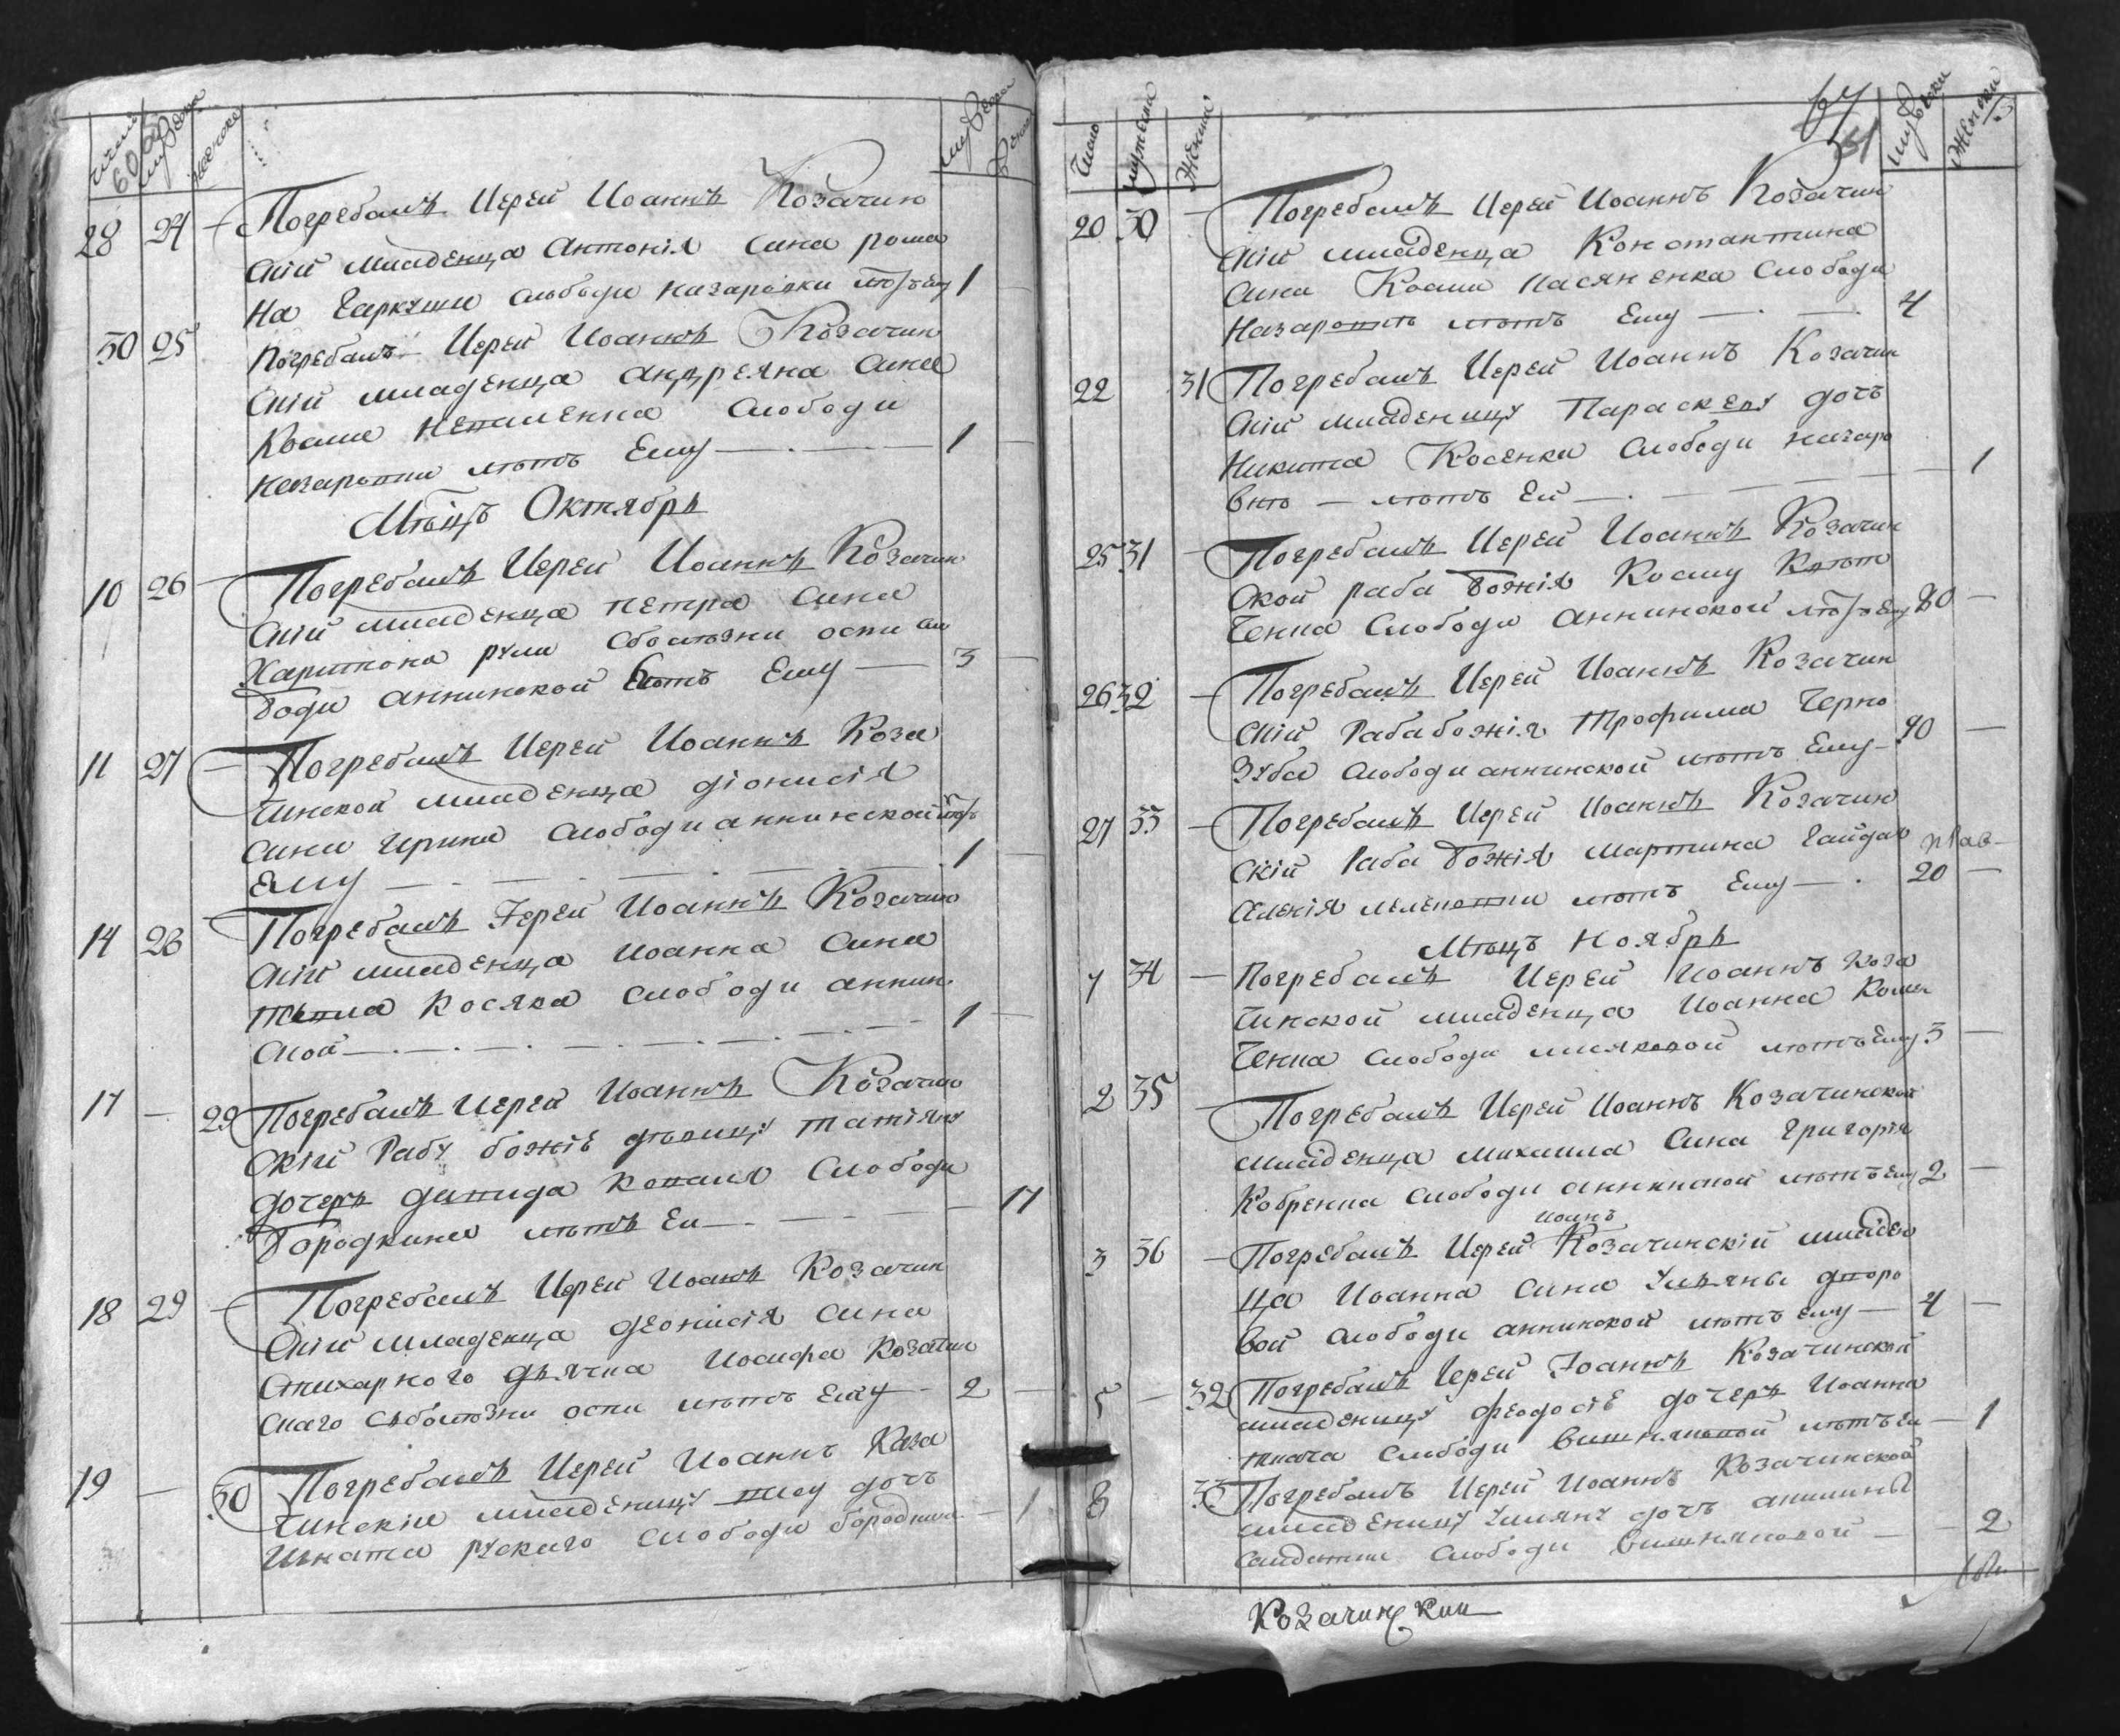 число мужеска женска
28 24 — Погребалъ Иерей Иоаннъ Козачин
скій младенца Антонія сина рома
на Гаркуши слободи назаровки лѣтъ ему 1 —
30 25 Погребалъ Иерей Иоаннъ Козачин
скій младенца андреяна сина
Козми слободи
назаровки лѣтъ Ему — 1 —
Мѣсцъ Октябрь
10 26 — Погребалъ Иерей Иоаннъ Козачин
скій младенца петра сина
Харитона рули сболѣзни оспи сло
боди аннинской лѣтъ Ему — 3 —
11 27 — Погребалъ Иерей Иоаннъ Коза
чинской младенца діонисія
сина Ирини слободи аннинской лѣтъ
Ему — 1 —
14 28 Погребалъ Іерей Иоаннъ Козачин
скій младенца иоанна сина
Косяка слободи аннин
ской — 1 —
17 — 29 Погребалъ Иерей Иоаннъ Козачин
скій Рабу божіѣ дѣвицу татіяну
дочерь давида коваля слободи
Бородкина лѣтъ Еи — 17
18 29 — Погребалъ Иерей Иоанъ Козачин
скій младенца деонисія сина
стихарного дьячка Иосифа Козачин
скаго сьболѣзни оспи лѣтъ Ему — 2 —
19 — 30 Погребалъ Иерей Иоаннъ Каза
чинскій младеницу дочъ
Игната рускаго слободи бородкина — 1
64
51
Число мужеска Женска мужески Женски
20 30 — Погребалъ Иерей Иоаннъ Козачин
скій младенца Константина
сина Козми Касяненка слободи
Назаровкѣ лѣтъ Ему — 4
22 31 Погребалъ Иерей Иоаннъ Козачин
скій младеницу Параскеву дочъ
Никита Косенка слободи назаро
вкѣ — лѣтъ Ей — 1
25 31 — Погребалъ Иерей Иоаннъ Козачин
ской раба Божія Козму
ченка слободи аннинской лѣтъ Ему 80 —
26 32 — Погребалъ Иерей Иоаннъ Козачин
скій Раба божія Трофима Черно
зуба слободи аннинской лѣтъ Ему — 90 —
27 33 — Погребалъ Иерей Иоаннъ Козачин
скій Раба Божія мартина Гайдая
селенія мелековки лѣтъ Ему — 20 —
Мѣсцъ Ноябрь
1 34 — Погребалъ Иерей Иоаннъ Коза
чинской младенца Иоанна
ченка слободи лѣтъ ему 3 —
2 35 — Погребалъ Иерей Иоаннъ Козачинской
младенца михаила сина григорія
Кобренка слободи аннинской лѣтъ ему 2 —
иоанъ
3 36 — Погребалъ Иерей Козачинскій младен
ца Иоанна сина Ульяны дворо
вой слободи аннинской лѣтъ ему — 4 —
5 — 32 Погребалъ Іерей Іоаннъ Козачинской
младеницу феодосіѣ дочерь Иоанна
ткача слободи вишняковой лѣтъ Еи — 1
8 33 Погребалъ Иерей Иоаннъ Козачинской
младеницу Улияну дочъ
слободи вишняковой — 2
Козачинскии